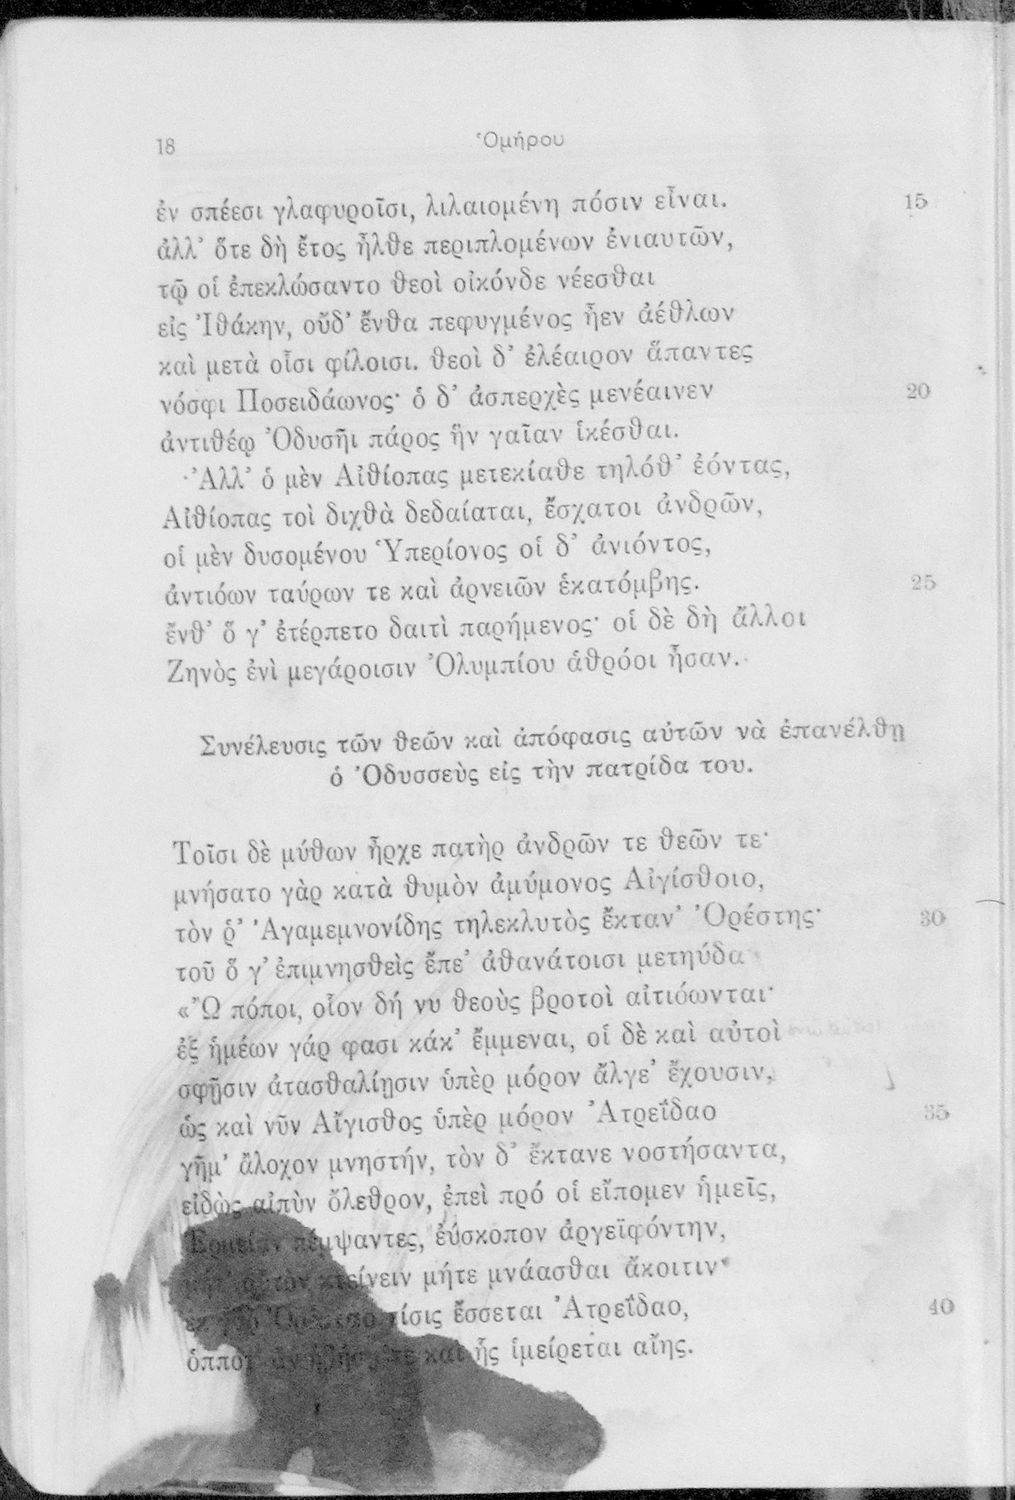 18 Ὁμήρου
ἐν σπέεσι γλαφυροῖσι, λιλαιομένη πόσιν εἶναι. 15
ἀλλ’ ὅτε δὴ ἔτος ἦλθε περιπλομένων ἐνιαυτῶν,
τῷ οἱ ἐπεκλώσαντο θεοὶ οἰκόνδε νέεσθαι
εἰς Ἰθάκην, οὔδ’ ἔνθα πεφυγμένος ἦεν ἀέθλων
καὶ μετὰ οἷσι φίλοισι. θεοὶ δ’ ἐλέαιρον ἅπαντες
νόσφι Ποσειδάωνος· ὁ δ’ ἀσπερχὲς μενέαινεν 20
ἀντιθέῳ Ὀδυσῆι πάρος ἣν γαῖαν ἱκέσθαι.
Ἀλλ’ ὁ μὲν Αἰθίοπας μετεκίαθε τηλόθ’ ἐόντας,
Αἰθίοπας τοὶ διχθὰ δεδαίαται, ἔσχατοι ἀνδρῶν,
οἱ μὲν δυσομένου Ὑπερίονος οἱ δ’ ἀνιόντος,
ἀντιόων ταύρων τε καὶ ἀρνειῶν ἑκατόμβης. 25
ἔνθ’ ὅ γ’ ἐτέρπετο δαιτὶ παρήμενος· οἱ δὲ δὴ ἄλλοι
Ζηνὸς ἐνὶ μεγάροισιν Ὀλυμπίου ἁθρόοι ἦσαν.
Συνέλευσις τῶν θεῶν καὶ ἀπόφασις αὐτῶν νὰ ἐπανέλθῃ
ὁ Ὀδυσσεὺς εἰς τὴν πατρίδα του.
Τοῖσι δὲ μύθων ἦρχε πατὴρ ἀνδρῶν τε θεῶν τε·
μνήσατο γὰρ κατὰ θυμὸν ἀμύμονος Αἰγίσθοιο,
τὸν ῥ’ Ἀγαμεμνονίδης τηλεκλυτὸς ἔκταν’ Ὀρέστης· 30
τοῦ ὅ γ’ ἐπιμνησθεὶς ἔπε’ ἀθανάτοισι μετηύδα
«Ὢ πόποι, οἷον δή νυ θεοὺς βροτοὶ αἰτιόωνται·
ἐξ ἡμέων γάρ φασι κάκ’ ἔμμεναι, οἱ δὲ καὶ αὐτοὶ
σφῇσιν ἀτασθαλίῃσιν ὑπὲρ μόρον ἄλγε’ ἔχουσιν,
ὡς καὶ νῦν Αἴγισθος ὑπὲρ μόρον Ἀτρεΐδαο 35
γῆμ’ ἄλοχον μνηστήν, τὸν δ’ ἔκτανε νοστήσαντα,
εἰδὼς αἰπὺν ὄλεθρον, ἐπεὶ πρό οἱ εἴπομεν ἡμεῖς,
Ἑρμείαν πέμψαντες, ἐύσκοπον ἀργεϊφόντην,
μήτ’ αὐτὸν κτείνειν μήτε μνάασθαι ἄκοιτιν·
ἐκ γὰρ Ὀρέσταο τίσις ἔσσεται Ἀτρεΐδαο, 40
ὁππότ’ ἂν ἡβήσῃ τε καὶ ἧς ἱμείρεται αἴης.